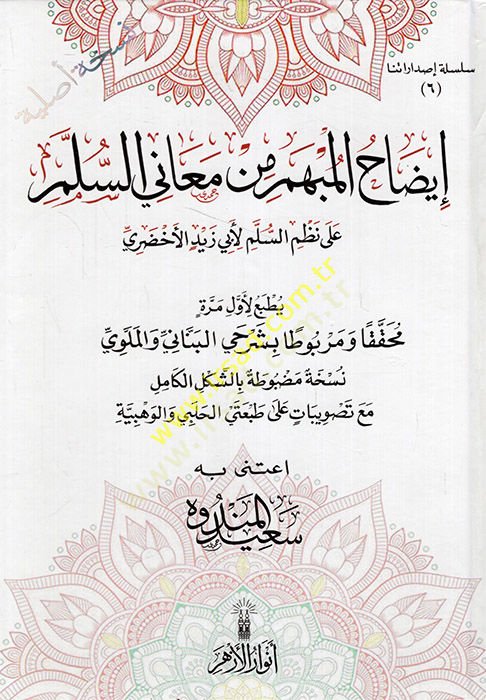 سلسلة إصداراتنا
(٦)
نسخة أصلية
إِيضَاحُ المُبْهَمِ مِنْ مَعَانِي السُّلَّمِ
عَلَى نَظْمِ السُّلَّمِ لِأَبِي زَيْدٍ الأَخْضَرِيِّ
يُطْبَعُ لِأَوَّلِ مَرَّةٍ
مُحَقَّقًا وَمَرْبُوطًا بِشَرْحَيِ البَنَّانِيِّ وَالمَلَّوِيِّ
نُسْخَةٌ مَضْبُوطَةٌ بِالشَّكْلِ الكَامِلِ
مَعَ تَصْوِيبَاتٍ عَلَى طَبْعَتَيِ الحَلَبِيِّ وَالوَهْبِيَّةِ
اعتنى به
سَعِيد المَنْدُوه
أنوار الأزهر